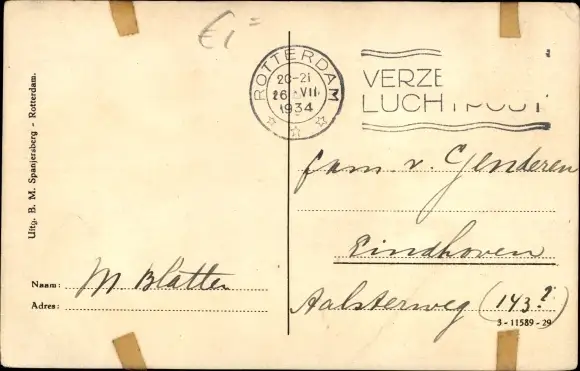 €1=
ROTTERDAM
20-21
26 VII
1934
VERZE
LUCHTPOST
Uitg. B. M. Spanjersberg - Rotterdam.
Naam: M Blatter
Adres:
fam. v. Genderen
Eindhoven
Aalsterweg (143?)
3-11589-29